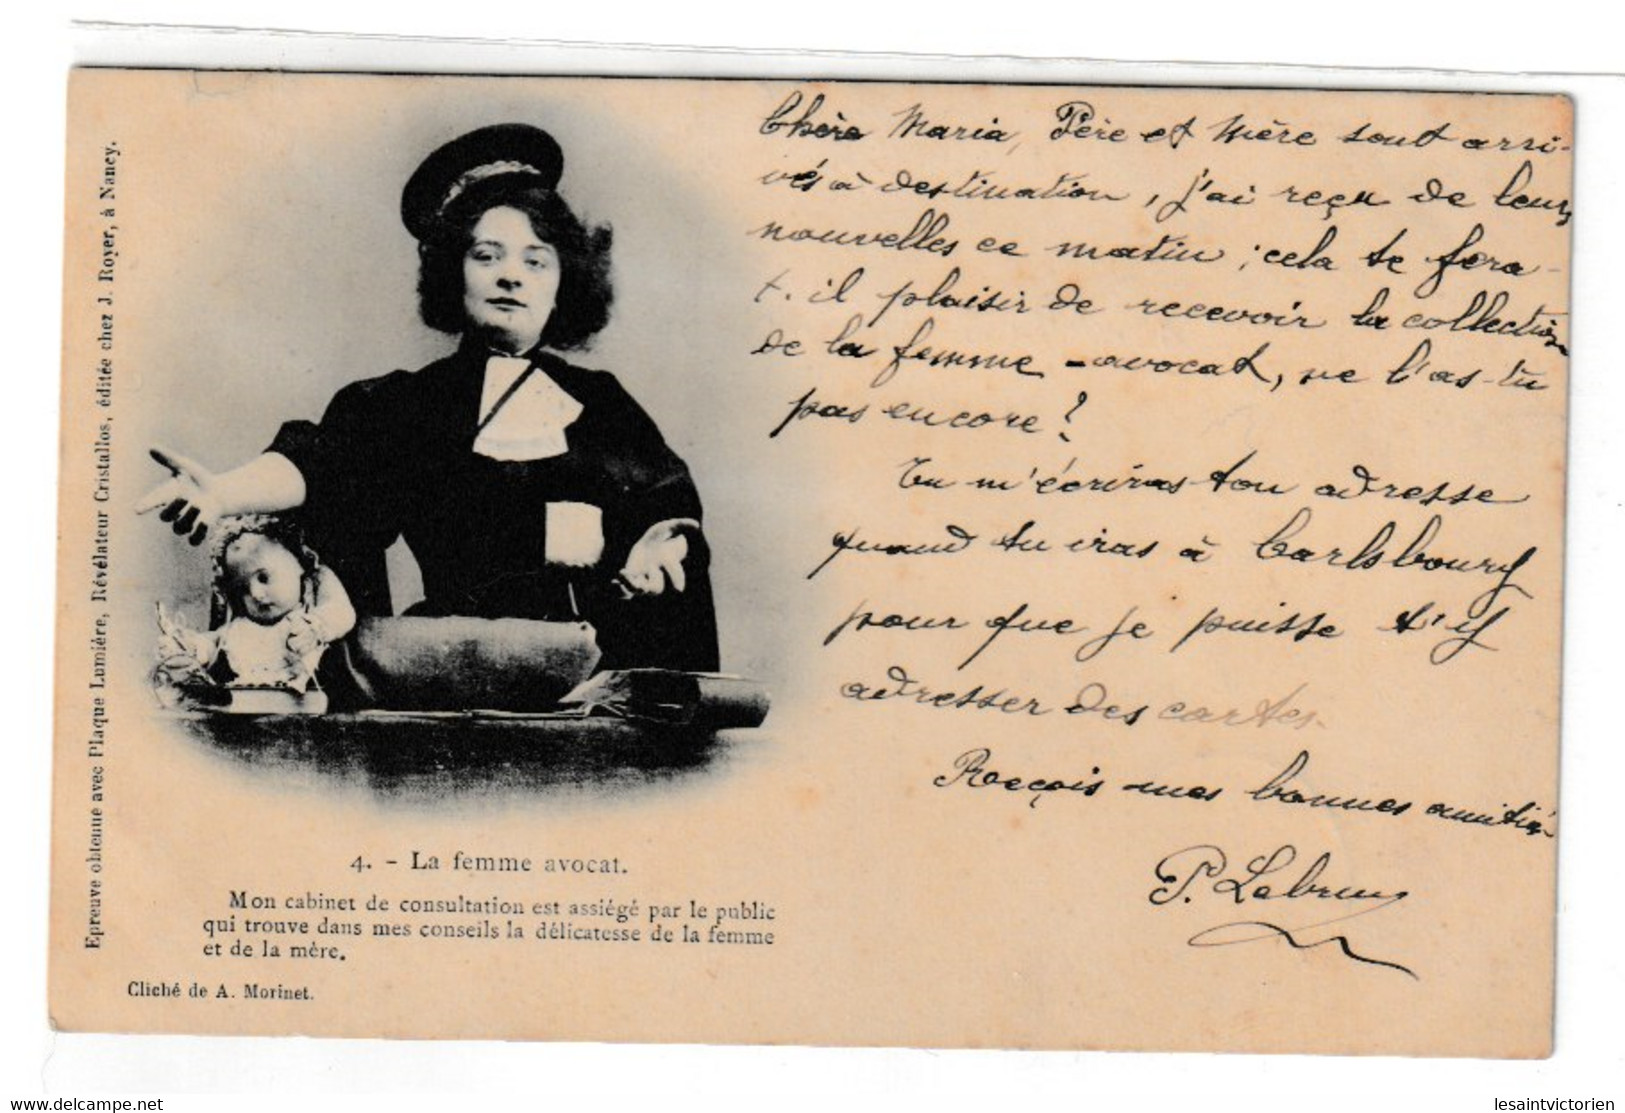 Epreuve obtenue avec Plaque Lumière, Révélateur Cristallos, éditée chez J. Royer, à Nancy.
4. - La femme avocat.
Mon cabinet de consultation est assiégé par le public
qui trouve dans mes conseils la délicatesse de la femme
et de la mère.
Cliché de A. Morinet.
Chère Maria, Père et Mère sont arri-
vés à destination, j'ai reçu de leurs
nouvelles ce matin ; cela te fera-
t-il plaisir de recevoir la collection
de la femme-avocat, ne l'as-tu
pas encore ?
Tu m'écriras ton adresse
quand tu iras à Carlsbourg
pour que je puisse t'y
adresser des cartes.
Reçois mes bonnes amitiés
P. Lebrun
https://www.delcampe.net
lesaintvictorien